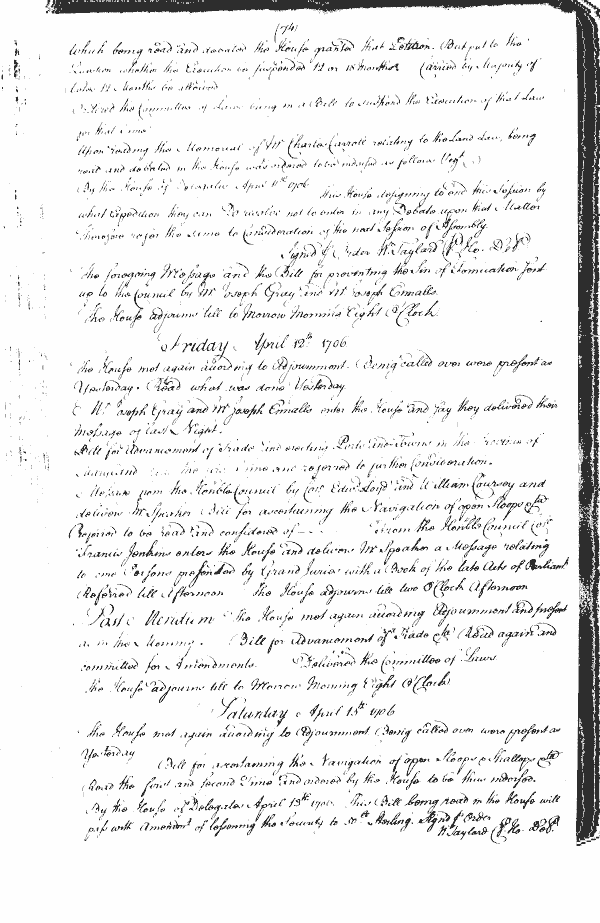 (74)
which being read and debated the House granted that Petition. But put to the
Question whether the Execution be suspended 12 or 18 months Carried by Majority of
Votes 12 Months be allowed
Ordered the Committee of Laws bring in a Bill to suspend the Execution of that Law
for that time
Upon reading the Memorial of Mr Charles Carroll relating to the Land Law, being
read and debated in the House was ordered to be indorsed as follows Viz.
By the House of Delegates April 11th 1706
this House designing to end this Session by
what Expedition they can Do resolve not to enter in any Debate upon that Matter
therefore refer the same to Consideration of the next Session of Assembly.
Signed p Order W Taylard Cl Ho. Del
The foregoing Message and the Bill for preventing the Sin of Fornication sent
up to the Council by Mr Joseph Gray and Mr Joseph Ennalls.
The House adjourns till to Morrow Morning Eight O'Clock
Friday April 12th 1706
The House met again according to Adjournment. Being called over were present as
Yesterday. Read what was done Yesterday
Mr Joseph Gray and Mr Joseph Ennalls enter the House and say they delivered their
Message of last Night.
Bill for Advancement of Trade and erecting Ports and Towns in the Province of
Maryland read the first time and referred to further Consideration.
Message from the Honble Council by Colo Edwd Loyd and William Coursey and
delivers Mr Speaker Bill for ascertaining the Navigation of open Sloops etc
Referred to be read and considered of From the Honble Council Colo
Francis Jenkins enters the House and delivers Mr Speaker a Message relating
to some Persons presented by Grand Juries with a Book of the late Acts of Parliamt
Referred till Afternoon The House adjourns till two O'Clock Afternoon
Post Meridiem The House met again according Adjournment and present
as in the Morning. Bill for Advancement of Trade etc Read again and
committed for Amendments. Delivered the Committee of Laws
The House adjourns till to Morrow Morning Eight O'Clock
Saturday April 13th 1706
The House met again according to Adjournment Being called over were present as
Yesterday Bill for ascertaining the Navigation of open Sloops & Shallops etc
Read the first and second time and ordered by the House to be thus indorsed.
By the House of Delegates April 13th 1706. This Bill being read in the House will
pass with Amendmt of lessening the Security to 50th Sterling. Signed p Order
W Taylard Cl Ho. Del.